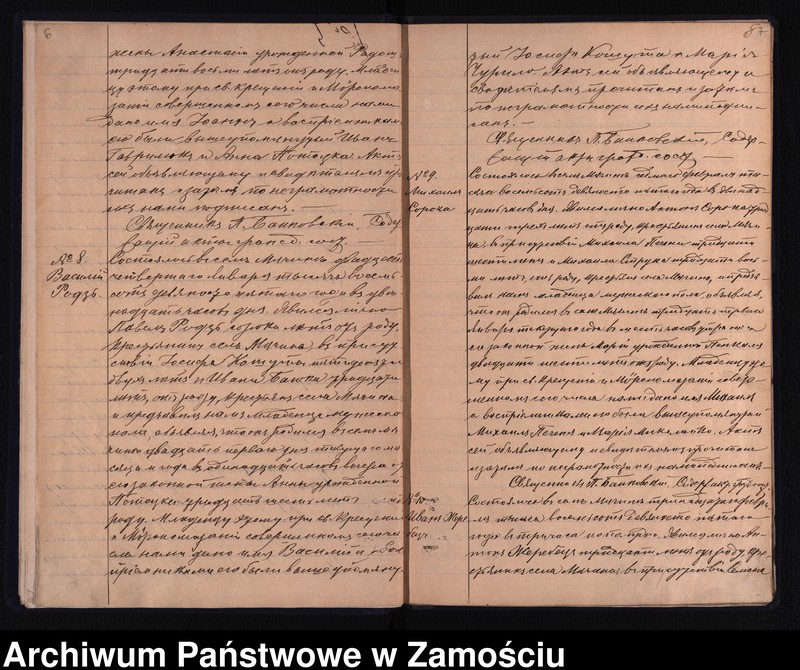 6
жены Анастасіи урожденной Родзъ
тридцати восьми лѣтъ отъ роду. Младен-
цу этому при св. крещеніи и Мѵропома-
заніи совершенномъ сего числа нами
дано имя Іоаннъ, а воспріемниками
его были вышеупомянутый Иванъ
Гаврилюкъ и Анна Потоцка. Актъ
сей объявляющему и свидѣтелямъ про-
читанъ и за ихъ по неграмотности
нами подписанъ. —
Священникъ П. Банковскій, Содер-
жащій акты гражд. сост. —
№ 8.
Василій
Родзь.
Состоялось въ селѣ Мягкомъ двадцать
четвертаго Января тысяча восемь-
сотъ девяносто пятаго года въ две-
надцать часовъ дня. Явился лично
Павелъ Родзь сорока лѣтъ отъ роду,
крестьянинъ села Мягкаго въ присут-
ствіи Іосифа Кошуты пятидесяти
двухъ лѣтъ и Ивана Баюка тридцати
лѣтъ отъ роду, крестьянъ села Мягкаго
и предъявилъ намъ младенца мужескаго
пола, объявляя, что онъ родился въ селѣ Мяг-
комъ двадцать перваго дня текущаго мѣ-
сяца и года въ одинадцать часовъ вечера отъ
законной жены Анны урожденной
Потоцка тридцати шести лѣтъ отъ
роду. Младенцу этому при св. Крещеніи
и Мѵропомазаніи совершенномъ сего чи-
сла нами дано имя Василій, а вос-
пріемниками его были вышеупомяну-
87
тый Іосифъ Кошута и Марія
Чурило. Актъ сей объявляющему и
свидѣтелямъ прочитанъ и за ихъ
по неграмотности нами подпи-
санъ. —
Священникъ П. Банковскій, Содер-
жащій акты граж. сост. —
№ 9.
Михаилъ
Сорока
Состоялось въ селѣ Мягкомъ седьмаго Февраля тыс-
яча восемьсотъ девяносто пятаго года въ двенад-
цать часовъ дня. Явился лично Антонъ Сорока трид-
цати трехъ лѣтъ отъ роду, крестьянинъ села Мягка-
го, въ присутствіи Михаила Печени тридцати
шести лѣтъ и Михаила Сорука тридцати вось-
ми лѣтъ отъ роду, крестьянъ села Мягкаго, и предъя-
вилъ намъ младенца мужескаго пола, объявляя,
что онъ родился въ селѣ Мягкомъ тридцать перваго
Января текущаго года въ шесть часовъ утра отъ
законной жены Маріи урожденной
двадцати шести лѣтъ отъ роду. Младенцу это-
му при св. крещеніи и Мѵропомазаніи совер-
шенномъ сего числа нами дано имя Михаилъ
а воспріемниками его были вышеупомянутый
Михаилъ Печеня и Марія Миколайко. Актъ
сей объявляющему и свидѣтелямъ прочитанъ
и за ихъ по неграмотности нами подписанъ. —
Священникъ П. Банковскій, Содерж. акты гр. сост.
№ 10.
Иванъ Жере-
бецъ.
Состоялось въ селѣ Мягкомъ Февра-
ля тысяча восемьсотъ девяносто пятаго
года въ три часа по полудни. Явился лично Ан-
тонъ Жеребецъ тридцати лѣтъ отъ роду, кре-
стьянинъ села Мягкаго, въ присутствіи
Archiwum Państwowe w Zamościu